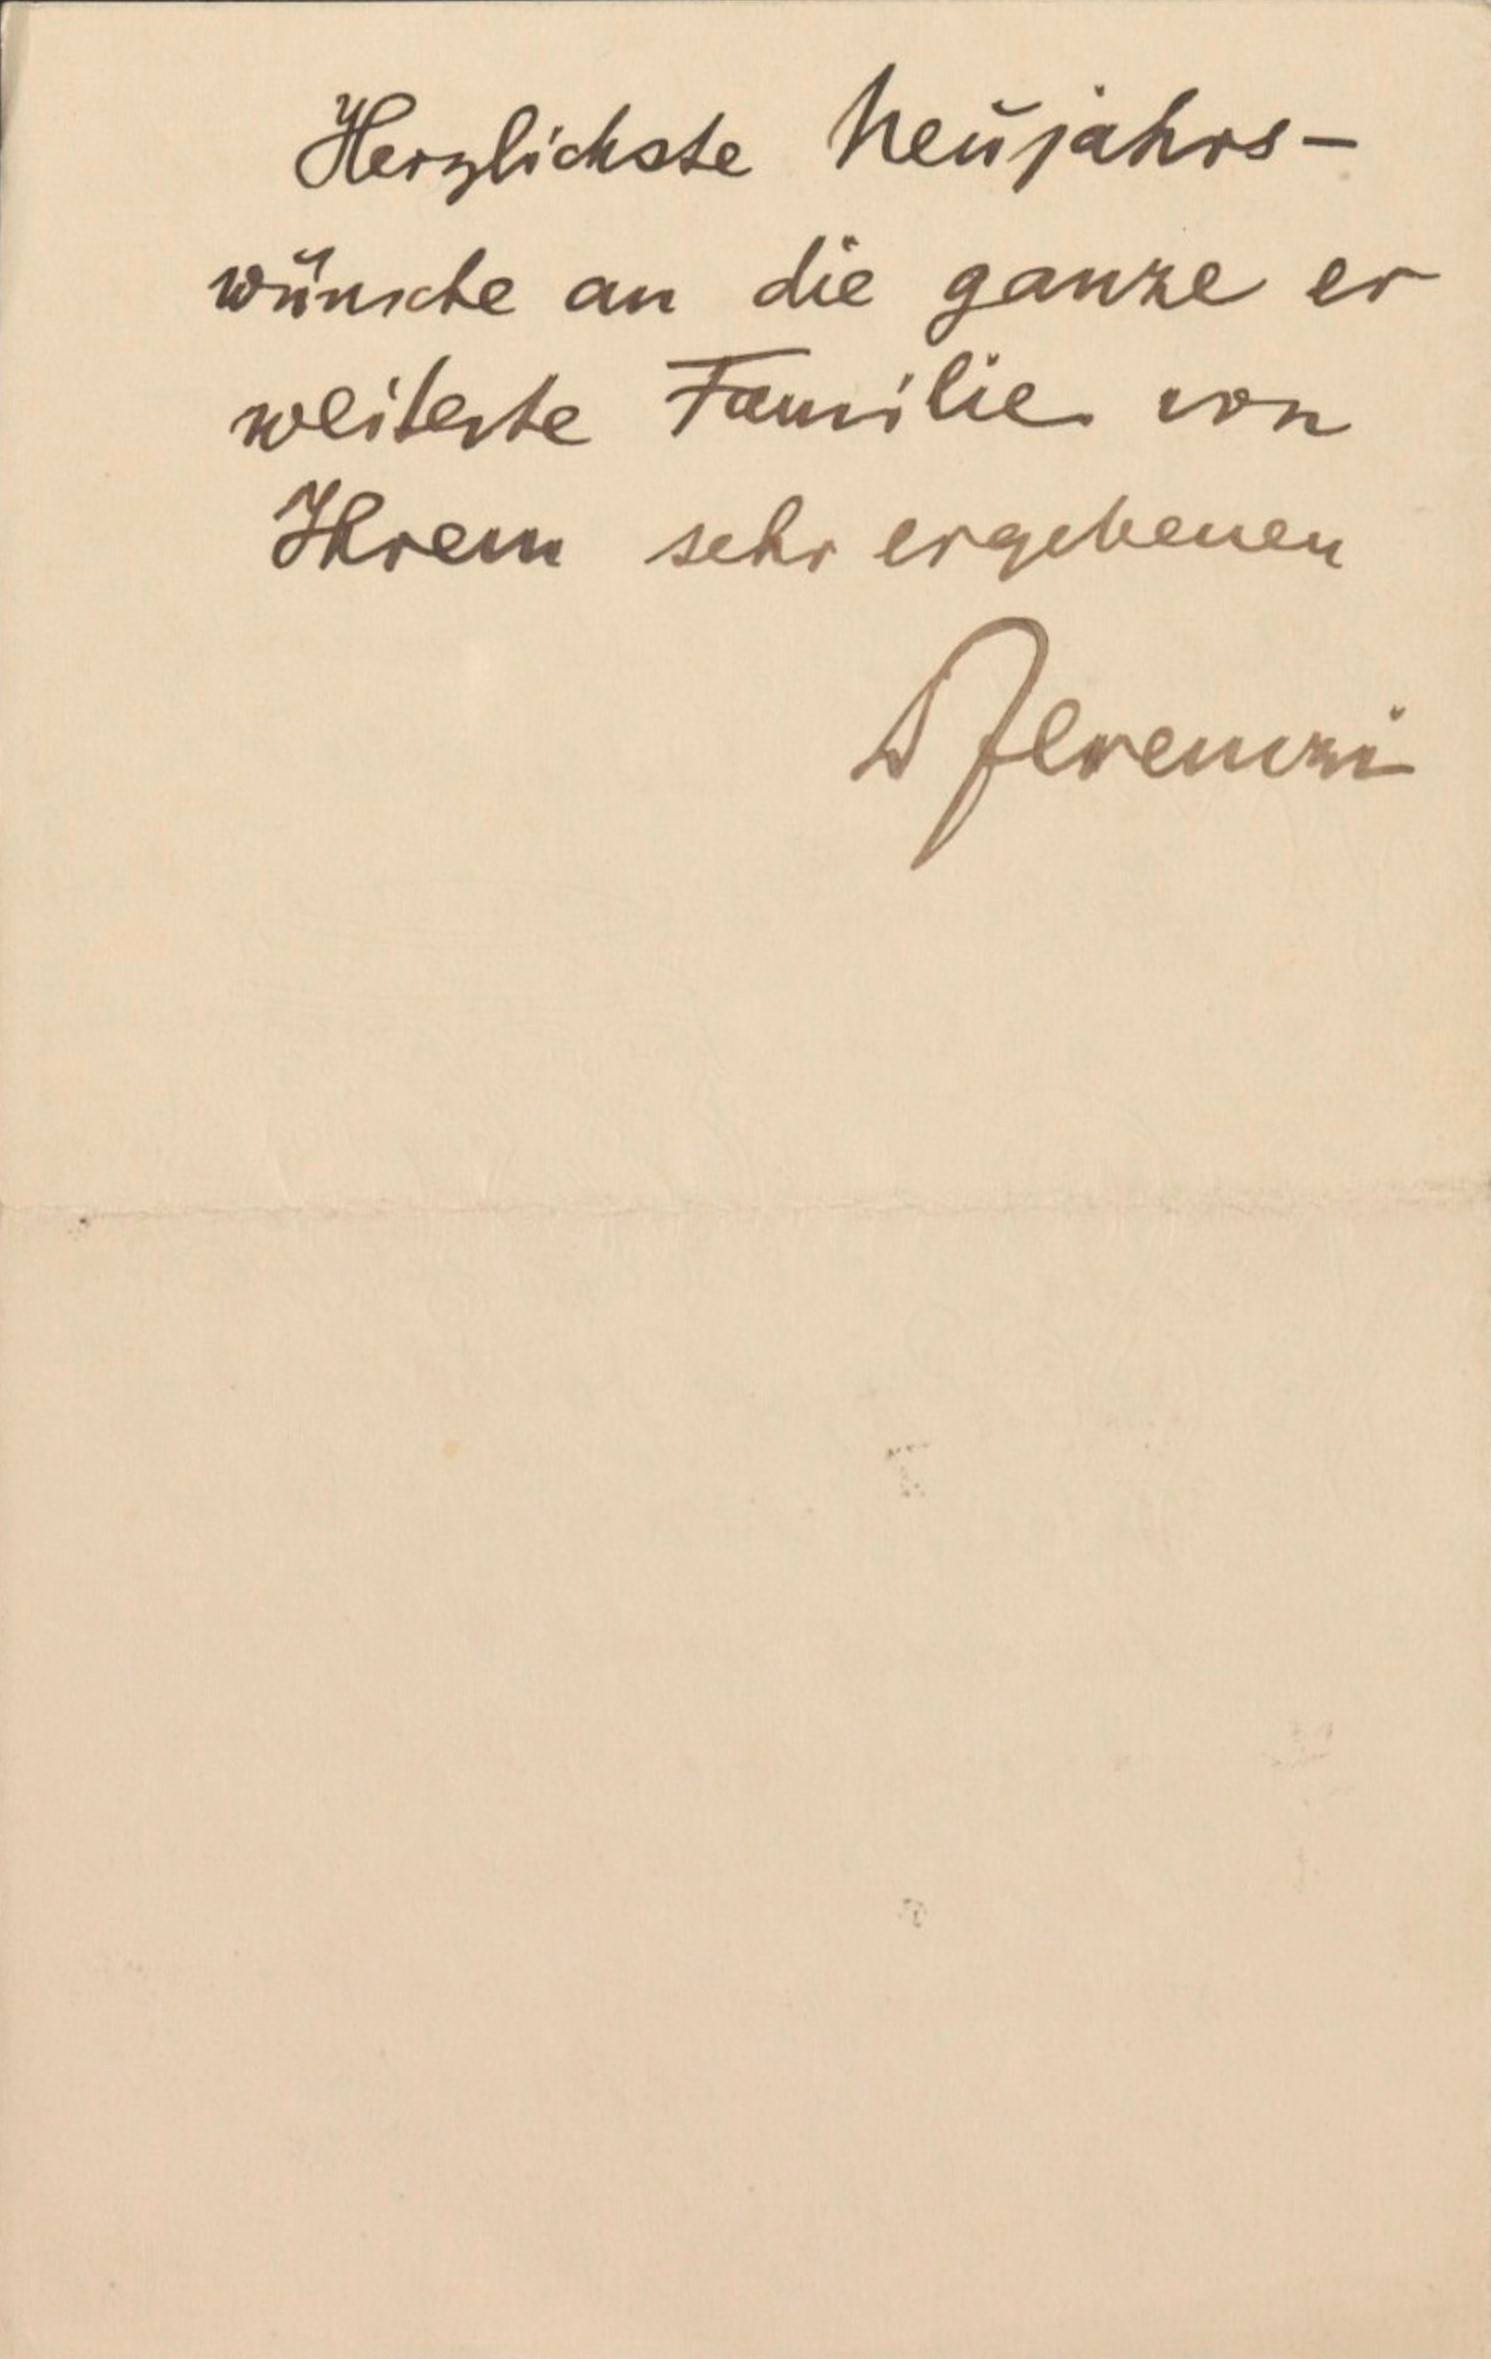 Herzlichste Neujahrs-
wünsche an die ganze er
weiterte Familie von
Ihrem sehr ergebenen
D Ferenczi